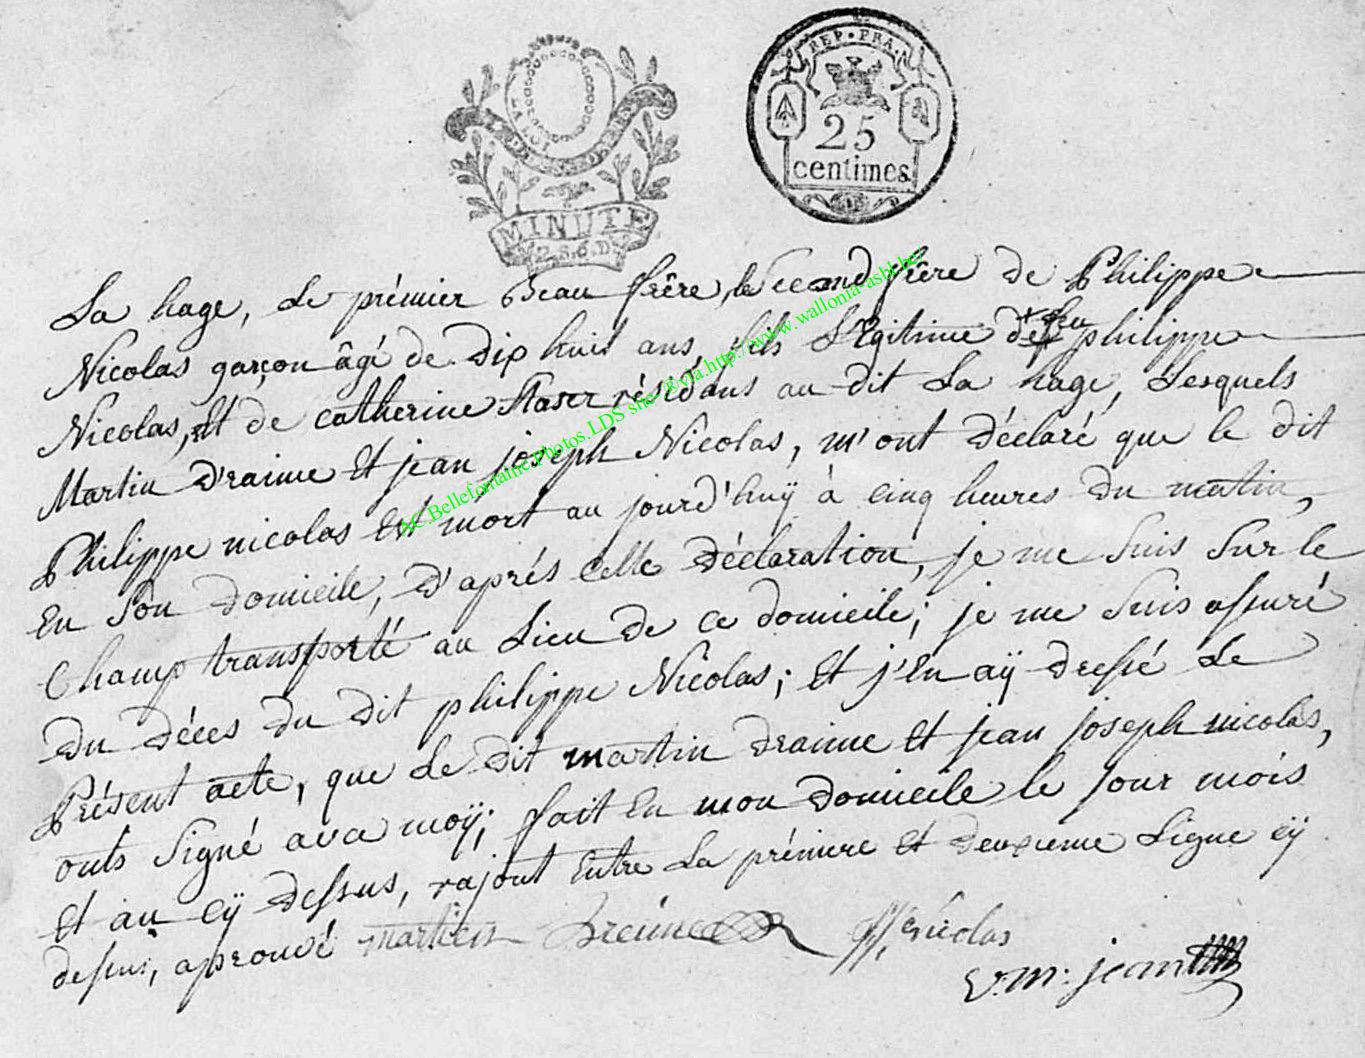 REP. FRA.
25
centimes.
MINUTE
La hage, Le prémier Beau frêre, le Second frêre de Philippe
Nicolas garçon âgé de Dix huit ans, fils Légitime de feu philippe
Nicolas, et de catherine résidans au dit La hage, Lesquels
Martin D'raime Et jean joseph Nicolas, m'ont Déclaré que le dit
Philippe nicolas Est mort au jourd'huÿ à cinq heures Du matin,
En Son domicile, D'aprés cette Déclaration, je me Suis Sur le
Champ transporté au Lieu De ce domicile; je me Suis assuré
Du Déces Du Dit philippe Nicolas; Et j'En aÿ Dressé Le
Présent acte, que Le Dit martin Draime Et jean joseph nicolas,
onts Signé avec moÿ; fait En mon Domicile le jour mois
Et an cÿ Dessus, rajout Entre La prémiere Et deuxieme Ligne cÿ
dessus, aprouvé martin Dreime Nicolas
AC.Bellefontaine.Photos.LDS site Rvia.http://www.wallonia-asbl.be